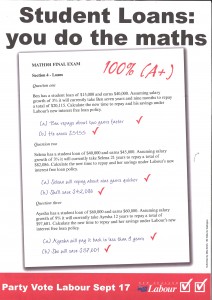 Student Loans:
you do the maths
MATH101 FINAL EXAM
100% (A+)
Section 4 – Loans
Question one
Ben has a student loan of $15,000 and earns $40,000. Assuming salary
growth of 3% it will currently take Ben seven years and nine months to repay
a total of $20,115. Calculate the new time to repay and his savings under
Labour's new interest free loan policy.
(a) Ben repays about two years faster
(b) He saves £5155
Question two
Selena has a student loan of $40,000 and earns $45,000. Assuming salary
growth of 3% it will currently take Selena 21 years to repay a total of
$82,086. Calculate the new time to repay and her savings under Labour's new
interest free loan policy.
(a) Selena will repay about nine years quicker
(b) She'll save $42,086
Question three
Ayesha has a student loan of $60,000 and earns $60,000. Assuming salary
growth of 3% it will currently take Ayesha 12 years to repay a total of
$97,601. Calculate the new time to repay and her savings under Labour's new
interest free loan policy.
(a) Ayesha will pay it back in less than 9 years
(b) She will save $37,601
Party Vote Labour Sept 17
Labour